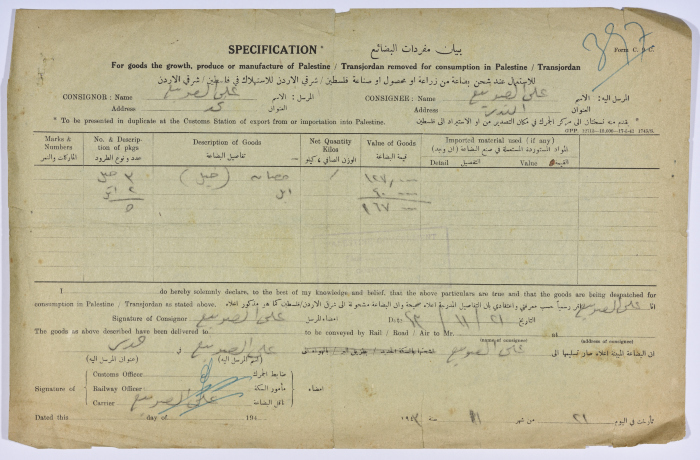 397
Form C. D. C.
SPECIFICATION * بيان مفردات البضائع
For goods the growth, produce or manufacture of Palestine / Transjordan removed for consumption in Palestine / Transjordan
للاستعمال عند شحن بضاعة من زراعة او محصول او صناعة فلسطين / شرقي الاردن للاستهلاك في فلسطين / شرقي الاردن
CONSIGNOR : Name علي الصويع المرسل : الاسم CONSIGNEE : Name علي الصويع المرسل اليه : الاسم
Address العنوان Address العنوان
* To be presented in duplicate at the Customs Station of export from or importation into Palestine. * يقدم منه نسختان الى مركز الجمرك في مكان التصدير من او الاستيراد الى فلسطين
Marks & Numbers الماركات والنمر
No. & Description of pkgs عدد ونوع الطرود
Description of Goods تفاصيل البضاعة
Net Quantity Kilos الوزن الصافي كيلو
Value of Goods قيمة البضاعة
Imported material used (if any) المواد المستوردة المستعملة في صنع البضاعة (ان وجد)
Detail التفصيل Value القيمة
٣ خيل حصان (خيل) ١٢٧
٢ ابل ٤٠
٥ ١٦٧
I do hereby solemnly declare, to the best of my knowledge, and belief, that the above particulars are true and that the goods are being despatched for
consumption in Palestine / Transjordan as stated above. انا علي الصويع اقرر رسمياً حسب معرفتي واعتقادي بان التفاصيل المدرجة اعلاه صحيحة وان البضاعة مشحونة الى شرق الاردن/فلسطين كما هو مذكور اعلاه
Signature of Consignor علي الصويع امضاء المرسل Date ٢١ / ١١ / ٤٣ التاريخ
The goods as above described have been delivered to to be conveyed by Rail / Road / Air to Mr. at
(name of consignee) (address of consignee)
ان البضاعة المبينة اعلاه صار تسليمها الى علي الصويع لشحنها بالسكة الحديد / بطريق البر / بالهواء الى علي الصويع في
(اسم المرسل اليه) (عنوان المرسل اليه)
Signature of
Customs Officer ضابط الجمرك
Railway Officer مأمور السكة
Carrier علي الصويع ناقل البضاعة
امضاء
Dated this day of 194 تأرخت في اليوم ٢١ من شهر ١١ سنة ١٩٤٣